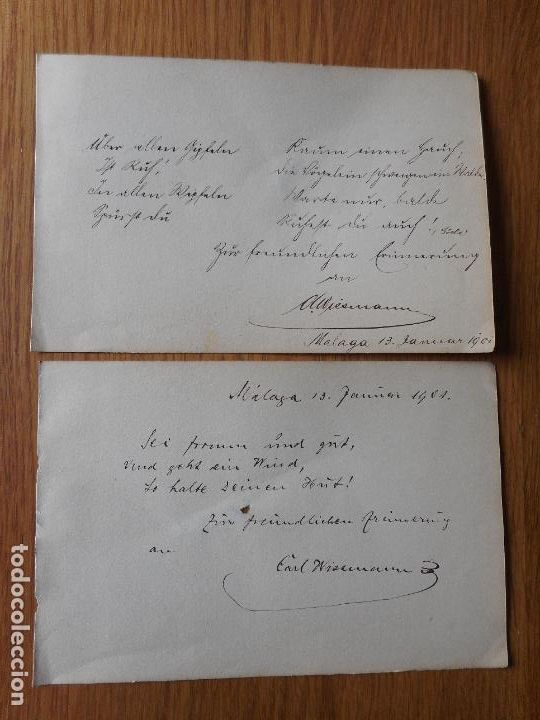 Über allen Gipfeln
Ist Ruh',
In allen Wipfeln
Spürst du
Kaum einen Hauch;
die Vögelein schweigen im Walde
Warte nur, balde
Ruhest du auch!
Zur freundlichen Erinnerung
an
A. Wiesmann
Malaga 13. Januar 190
Málaga 13. Januar 1901.
Sei fromm und gut,
Und geht ein Wind,
So halte Deinen Hut!
Zur freundlichen Erinnerung
an
Carl Wiesmann
todocoleccion